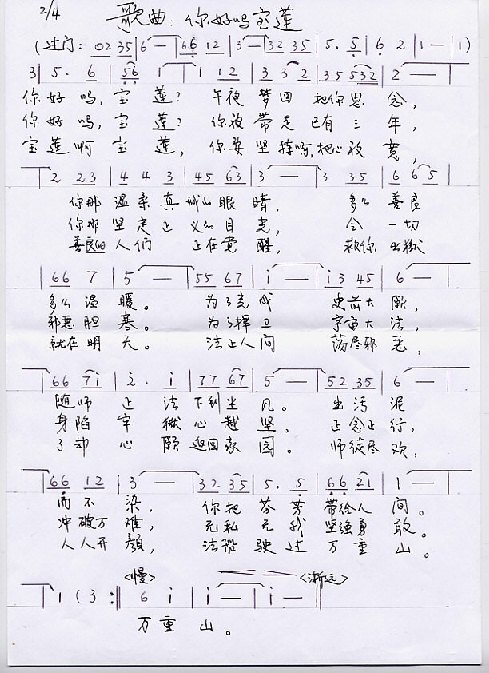 2/4
歌曲：你好吗宝莲
(过门: 02 35 | 6 — | 66 12 | 3 — | 32 35 | 5. 5 | 6 2 | 1 — | 1)
3 | 5. 6 | 56 1 | 1 12 | 3 3 2 | 35 532 | 2 —
你好吗，宝莲？午夜梦回把你思念，
你好吗，宝莲？你被带走已有三年，
宝莲啊宝莲，你要坚持啊把心放宽，
2 23 | 4 4 3 | 45 63 | 3 — | 3 35 | 6 65
你那温柔真诚的眼睛，多么善良
你那坚定正义的目光，令一切
善良的人们正在觉醒，救你出狱
66 7 | 5 — | 55 67 | i — | i3 45 | 6 —
多么温暖。为了完成史前大愿，
邪恶胆寒。为了捍卫宇宙大法，
就在明天。法正人间荡尽邪恶，
66 7i | 2. i | 77 67 | 5 — | 52 35 | 6 —
随师正法下到尘凡。出污泥
身陷牢狱心越坚。正念正行，
了却心愿返回家园。师徒尽欢，
66 12 | 3 — | 32 35 | 5. 5 | 66 21 | 1 —
而不染，你把芬芳带给人间。
冲破万难，无私无我坚强勇敢。
人人开颜，法船驶过万重山。
<慢> <渐慢>
1 (3 :| 6 i | i — | i — |
万重山。